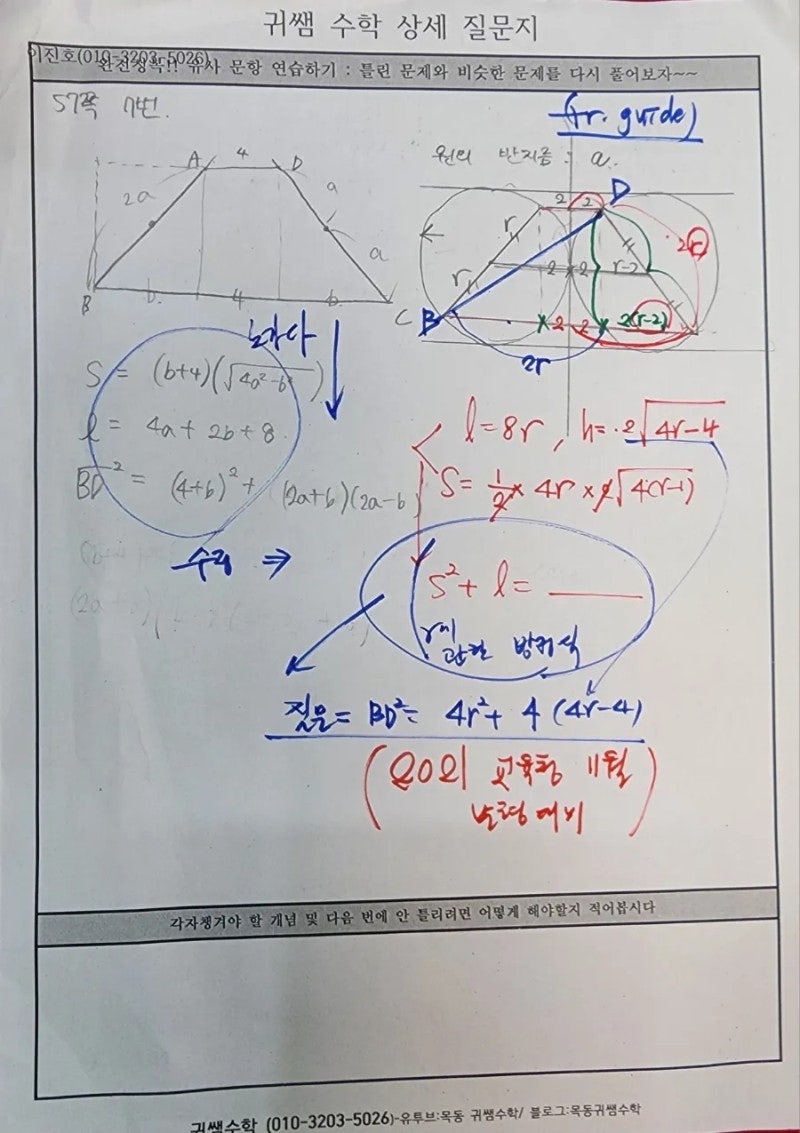 귀쌤 수학 상세 질문지
이진호(010-3203-5026)
완전정복!! 유사 문항 연습하기 : 틀린 문제와 비슷한 문제를 다시 풀어보자~~
57쪽 7번.
(tr. guide)
원의 반지름 : a.
A 4 D
2a a
a
B b 4 b C
2 2 D
r
r 2 2 r-2 2r
B 2 2 2(r-2)
2r
낫다
S = (b+4)(√4a²-b²)
l = 4a + 2b + 8
BD² = (4+b)² + (2a+b)(2a-b)
l = 8r , h = 2√4r-4
S = 1/2 × 4r × 2√4(r-1)
수정 ⇒
S² + l =
r에 관한 방정식
질문 = BD² = 4r² + 4(4r-4)
교육청 11월
각자챙겨야 할 개념 및 다음 번에 안 틀리려면 어떻게 해야할지 적어봅시다
귀쌤수학 (010-3203-5026)-유투브:목동 귀쌤수학/ 블로그:목동귀쌤수학